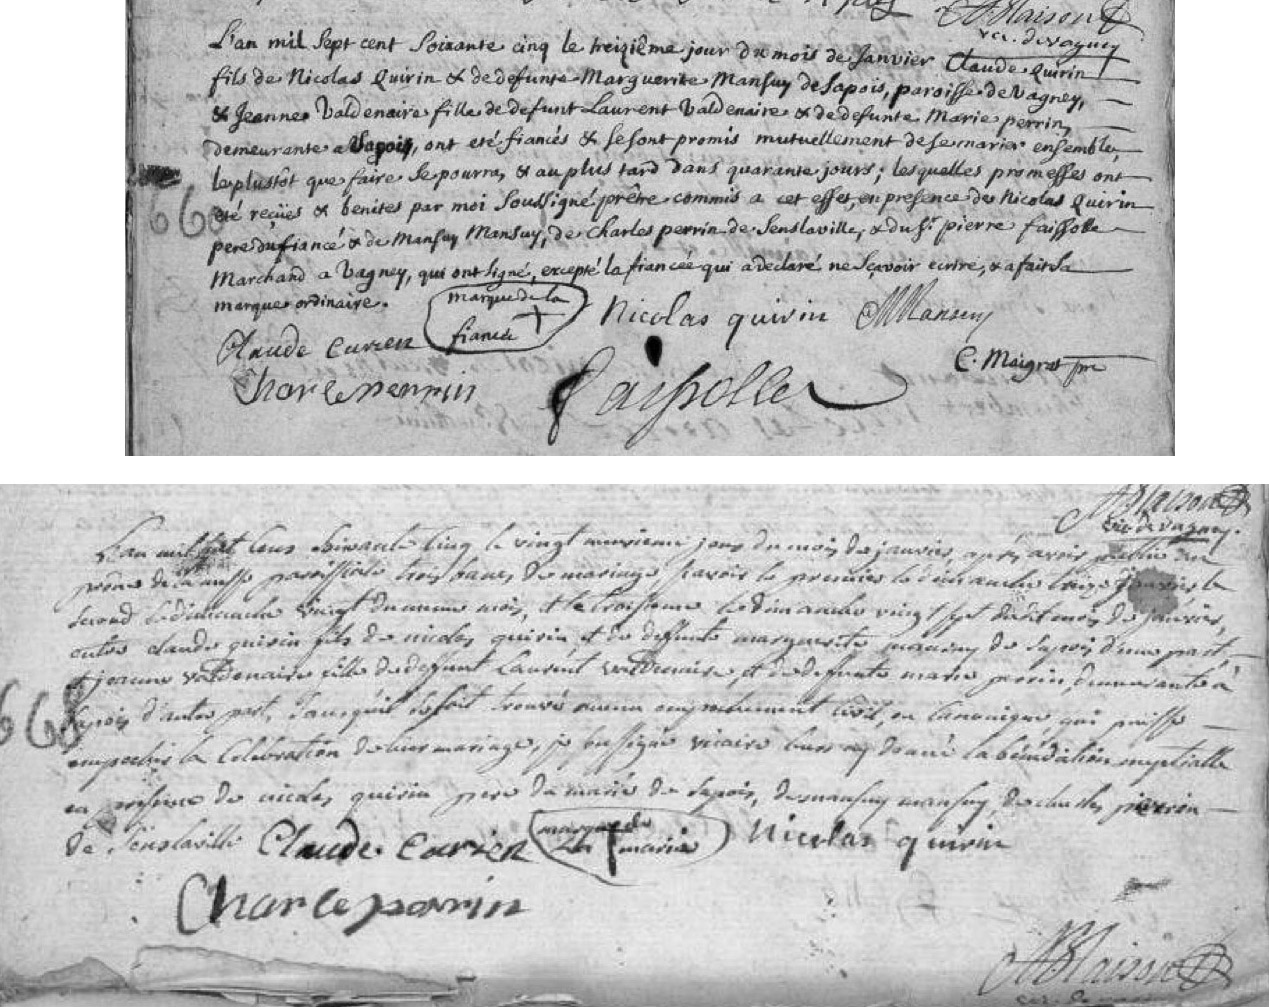 ABlaison
vic. de vagney
L'an mil sept cent soixante cinq le treizième jour du mois de Janvier Claude Quirin
fils de Nicolas Quirin & de defunte Marguerite Mansuy de Sapois, paroisse de Vagney,
& Jeanne Valdenaire fille de defunt Laurent Valdenaire & de defunte Marie perrin,
demeurante a Sapois, ont eté fiancés & se sont promis mutuellement de se marier ensemble,
le plustôt que faire se pourra, & au plus tard dans quarante jours; lesquelles promesses ont
été reçües & benites par moi Soussigné prêtre commis a cet effet, en presence de Nicolas Quirin
pere du fiancé & de Mansuy Mansuy, de Charles perrin de Senslaville, & du Sr. pierre faissolle
Marchand a Vagney, qui ont signé, excepté la fiancée qui a declaré ne sçavoir ecrire, & a fait sa
marque ordinaire.
marque de la
fiancée
Nicolas quirin
MMansuy
Claude Curien
C. Maigrat pre
Charle perrin
faissolle
668
ABlaison
vic. de vagney.
L'an mil sept cens soixante cinq le vingt neuvieme jour du mois de janvier, après avoir publié au
prone de la messe paroissiale trois bancs de mariage sçavoir le premier le dimanche treize janvier le
second le dimanche vingt du meme mois, et le troisieme le dimanche vingt sept dudit mois de janvier,
entre claude quirin fils de nicolas quirin, et de deffunte marguerite mansuy de Sapois d'une part
et jeanne valdenaire fille de deffunt Laurent valdenaire, et de defunte marie perrin, demeurante à
Sapois d'autre part, sans qu'il se soit trouvé aucun empechement civil, ou canonique, qui puisse
empecher la Celebration de leur mariage, je soussigné vicaire leurs ay donné la bénédiction nuptialle
en presence de nicolas quirin pere du marié de Sapois, de mansuy mansuy, de charles perrin
de Senslaville
Claude Curien
marque de
la mariée
Nicolas quirin
Charle perrin
668
ABlaison